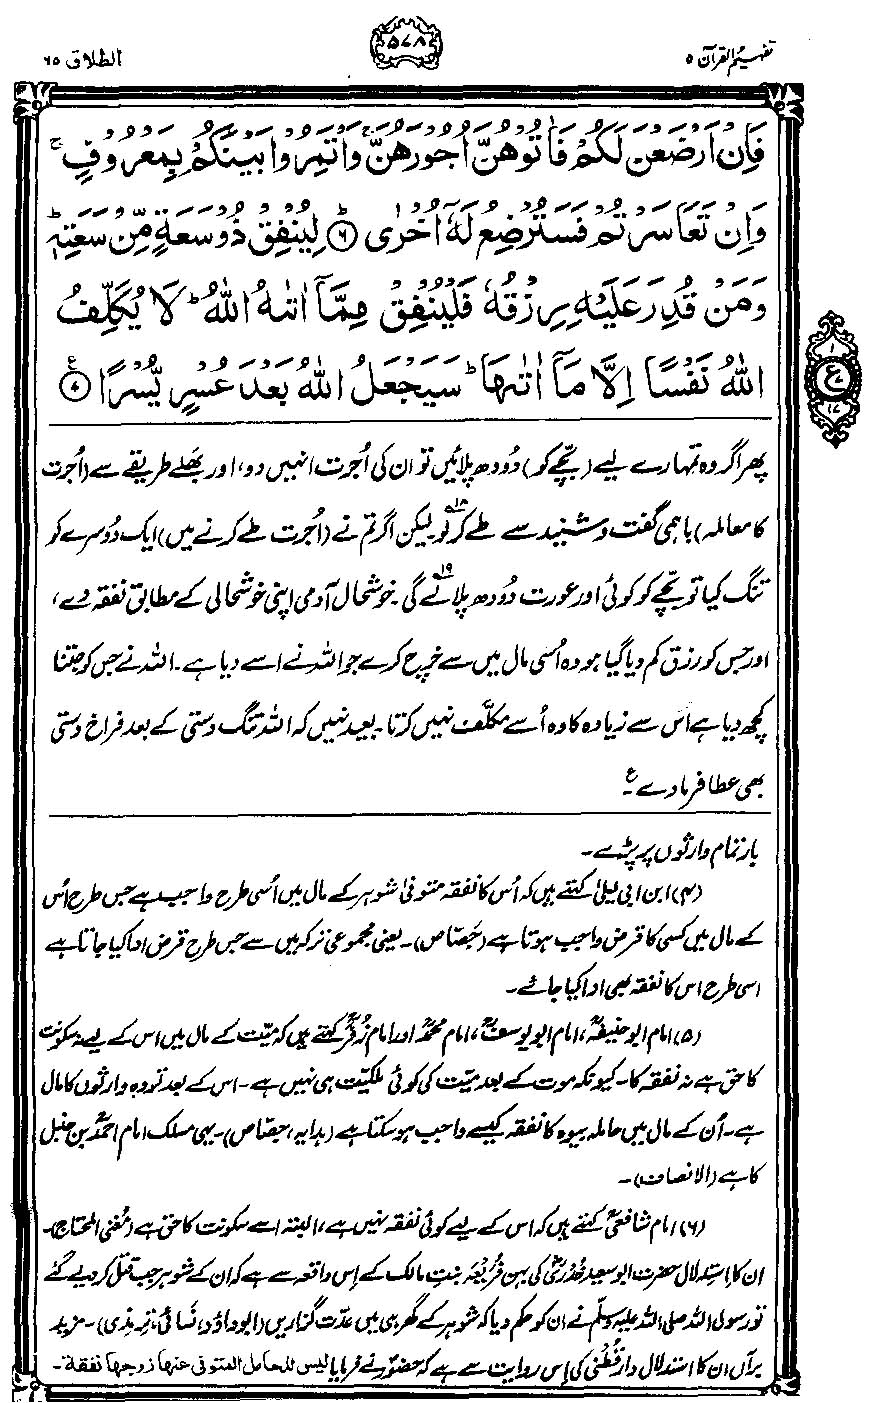 تفہیم القرآن ۵
۵۷۸
الطلاق ۶۵
فَاِنْ اَرْضَعْنَ لَكُمْ فَاٰتُوْهُنَّ اُجُوْرَهُنَّ ۚ وَاْتَمِرُوْا بَيْنَكُمْ بِمَعْرُوْفٍ ۚ
وَاِنْ تَعَاسَرْتُمْ فَسَتُرْضِعُ لَهٗٓ اُخْرٰى ؕ ﴿۶﴾ لِيُنْفِقْ ذُوْ سَعَةٍ مِّنْ سَعَتِهٖ ؕ
وَمَنْ قُدِرَ عَلَيْهِ رِزْقُهٗ فَلْيُنْفِقْ مِمَّآ اٰتٰىهُ اللّٰهُ ؕ لَا يُكَلِّفُ
اللّٰهُ نَفْسًا اِلَّا مَآ اٰتٰىهَا ؕ سَيَجْعَلُ اللّٰهُ بَعْدَ عُسْرٍ يُّسْرًا ﴿۷﴾ ع
۱
ع
۷
۱۷
پھر اگر وہ تمہارے لیے (بچّے کو) دُودھ پلائیں تو ان کی اُجرت انہیں دو، اور بھلے طریقے سے (اُجرت
کا معاملہ) باہمی گفت و شنید سے طے کر لو۱۸ لیکن اگر تم نے (اُجرت طے کرنے میں) ایک دُوسرے کو
تنگ کیا تو بچّے کو کوئی اور عورت دُودھ پلا لے گی۱۹۔ خوشحال آدمی اپنی خوشحالی کے مطابق نفقہ دے،
اور جس کو رزق کم دیا گیا ہو وہ اُسی مال میں سے خرچ کرے جو اللہ نے اسے دیا ہے۔ اللہ نے جس کو جتنا
کچھ دیا ہے اُس سے زیادہ کا وہ اُسے مکلّف نہیں کرتا۔ بعید نہیں کہ اللہ تنگ دستی کے بعد فراخ دستی
بھی عطا فرما دے۔ ع
بار تمام وارثوں پر پڑے۔
(۴) ابن ابی لیلیٰ کہتے ہیں کہ اُس کا نفقہ متوفیٰ شوہر کے مال میں اُسی طرح واجب ہے جس طرح اُس
کے مال میں کسی کا قرض واجب ہوتا ہے (جَصّاص)۔ یعنی مجموعی ترکہ میں سے جس طرح قرض ادا کیا جاتا ہے
اسی طرح اس کا نفقہ بھی ادا کیا جائے۔
(۵) امام ابو حنیفہؒ، امام ابو یوسفؒ، امام محمدؒ اور امام زُفَرؒ کہتے ہیں کہ میّت کے مال میں اس کے لیے نہ سکونت
کا حق ہے نہ نفقہ کا۔ کیونکہ موت کے بعد میّت کی کوئی ملکیّت ہی نہیں ہے۔ اس کے بعد تو وہ وارثوں کا مال
ہے۔ اُن کے مال میں حاملہ بیوہ کا نفقہ کیسے واجب ہو سکتا ہے (ہدایہ، جصّاص)۔ یہی مسلک امام احمدؒ بن حنبل
کا ہے (الانصاف)۔
(۶) امام شافعیؒ کہتے ہیں کہ اس کے لیے کوئی نفقہ نہیں ہے، البتہ اسے سکونت کا حق ہے (مُغنی المحتاج)۔
ان کا اِستدلال حضرت ابو سعید خُدْریؓ کی بہن فُرَیعَہ بنتِ مالک کے اِس واقعہ سے ہے کہ ان کے شوہر جب قتل کر دیے گئے
تو رسول اللہ صلی اللہ علیہ وسلّم نے ان کو حکم دیا کہ شوہر کے گھر ہی میں عدّت گزاریں (ابوداؤد، نَسائی، ترمذی)۔ مزید
برآں ان کا استدلال دارقُطنی کی اِس روایت سے ہے کہ حضورؐ نے فرمایا لیس للحامل المتوفی عنھا زوجھا نفقة۔